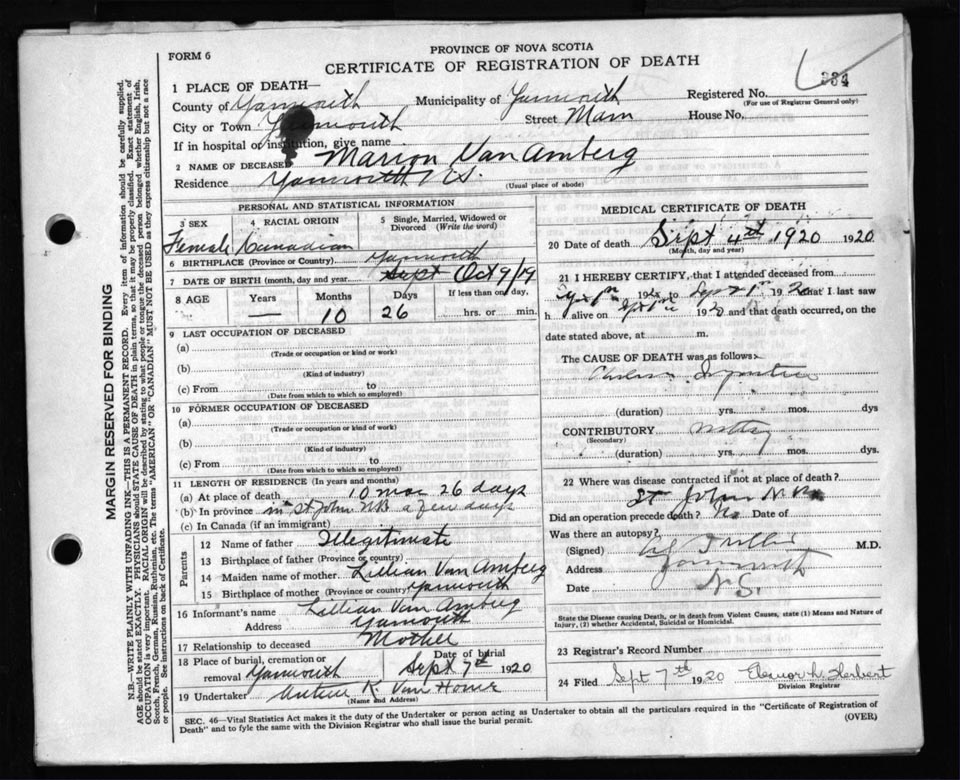 FORM 6
PROVINCE OF NOVA SCOTIA
CERTIFICATE OF REGISTRATION OF DEATH
384
1 PLACE OF DEATH—
County of Yarmouth Municipality of Yarmouth Registered No.
(For use of Registrar General only)
City or Town Yarmouth Street Main House No.
If in hospital or institution, give name
2 NAME OF DECEASED Marion Van Amberg
Residence Yarmouth N.S. (Usual place of abode)
PERSONAL AND STATISTICAL INFORMATION
3 SEX 4 RACIAL ORIGIN 5 Single, Married, Widowed or Divorced (Write the word)
Female Canadian
6 BIRTHPLACE (Province or Country) Yarmouth
7 DATE OF BIRTH (month, day and year) Sept Oct 9/19
8 AGE Years Months Days If less than one day,
— 10 26 hrs. or min.
9 LAST OCCUPATION OF DECEASED
(a)
(Trade or occupation or kind or work)
(b)
(Kind of industry)
(c) From to
(Date from which to which so employed)
10 FORMER OCCUPATION OF DECEASED
(a)
(Trade or occupation or kind of work)
(b)
(Kind of industry)
(c) From to
(Date from which to which so employed)
11 LENGTH OF RESIDENCE (In years and months)
(a) At place of death 10 mos 26 days
(b) In province in St John NB a few days
(c) In Canada (if an immigrant)
Parents
12 Name of father Illegitimate
13 Birthplace of father (Province or country)
14 Maiden name of mother Lillian Van Amberg
15 Birthplace of mother (Province or country) Yarmouth
16 Informant's name Lillian Van Amberg
Address Yarmouth
17 Relationship to deceased Mother
18 Place of burial, cremation or removal Yarmouth Date of burial Sept 7th 1920
19 Undertaker K. Van Horne
(Name and Address)
MEDICAL CERTIFICATE OF DEATH
20 Date of death Sept 4th 1920 1920
(Month, day and year)
21 I HEREBY CERTIFY, that I attended deceased from
192 to Sept 192 that I last saw
h alive on 192 and that death occurred, on
date stated above, at m.
The CAUSE OF DEATH was as follows
Cholera Infantum
(duration) yrs. mos. dys
CONTRIBUTORY
(Secondary)
(duration) yrs. mos. dys.
22 Where was disease contracted if not at place of death?
St John N.B.
Did an operation precede death? No Date of
Was there an autopsy?
(Signed) M.D.
Address Yarmouth
Date N.S.
State the Disease causing Death, or in death from Violent Causes, state (1) Means and Nature of Injury, (2) whether Accidental, Suicidal or Homicidal.
23 Registrar's Record Number
24 Filed Sept 7th 1920 Eleanor L. Herbert
Division Registrar
SEC. 46—Vital Statistics Act makes it the duty of the Undertaker or person acting as Undertaker to obtain all the particulars required in the "Certificate of Registration of
Death" and to fyle the same with the Division Registrar who shall issue the burial permit. (OVER)
MARGIN RESERVED FOR BINDING
N.B.—WRITE PLAINLY WITH UNFADING INK—THIS IS A PERMANENT RECORD. Every item of information should be carefully supplied.
AGE should be stated EXACTLY. PHYSICIANS should STATE CAUSE OF DEATH in plain terms, so that it may be properly classified. Exact statement of
OCCUPATION is very important. RACIAL ORIGIN will be described by stating to what people or tongue the deceased person belonged whether English, Irish,
Scotch, French, German, Russian, Ruthenian, etc. The terms "AMERICAN" OR "CANADIAN" MUST NOT BE USED as they express citizenship but not a race
or people. See instructions on back of Certificate.